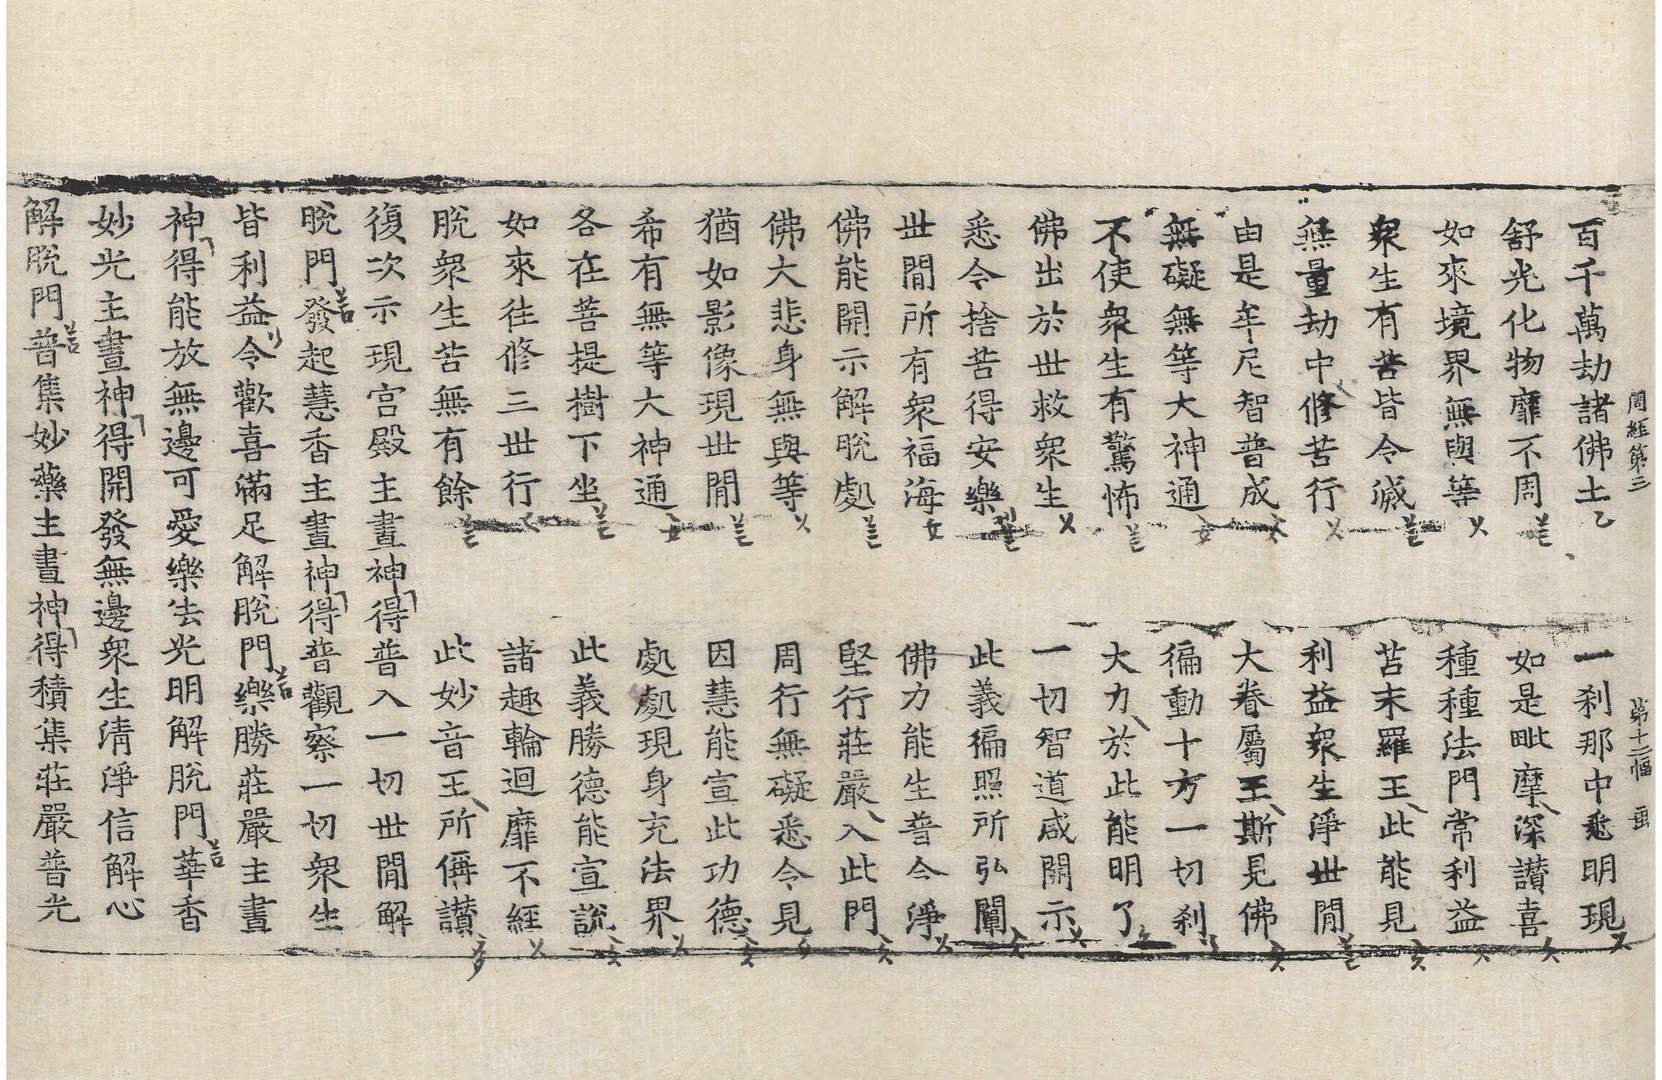 周經第三 第十二幅
百千萬劫諸佛土 一刹那中悉明現
舒光化物靡不周 如是毗摩深讃喜
如來境界無與等 種種法門常利益
衆生有苦皆令滅 苫末羅王此能見
無量劫中修苦行 利益衆生淨世間
由是牟尼智普成 大眷屬王斯見佛
無礙無等大神通 徧動十方一切刹
不使衆生有驚怖 大力於此能明了
佛出於世救衆生 一切智道咸開示
悉令捨苦得安樂 此義徧照所弘闡
世間所有衆福海 佛力能生普令淨
佛能開示解脫處 堅行莊嚴入此門
佛大悲身無與等 周行無礙悉令見
猶如影像現世間 因慧能宣此功德
希有無等大神通 處處現身充法界
各在菩提樹下坐 此義勝德能宣説
如來往修三世行 諸趣輪迴靡不經
脫衆生苦無有餘 此妙音王所稱讃
復次示現宮殿主晝神得普入一切世間解
脫門發起慧香主晝神得普觀察一切衆生
皆利益令歡喜滿足解脫門樂勝莊嚴主晝
神得能放無邊可愛樂法光明解脫門華香
妙光主晝神得開發無邊衆生清淨信解心
解脫門普集妙藥主晝神得積集莊嚴普光